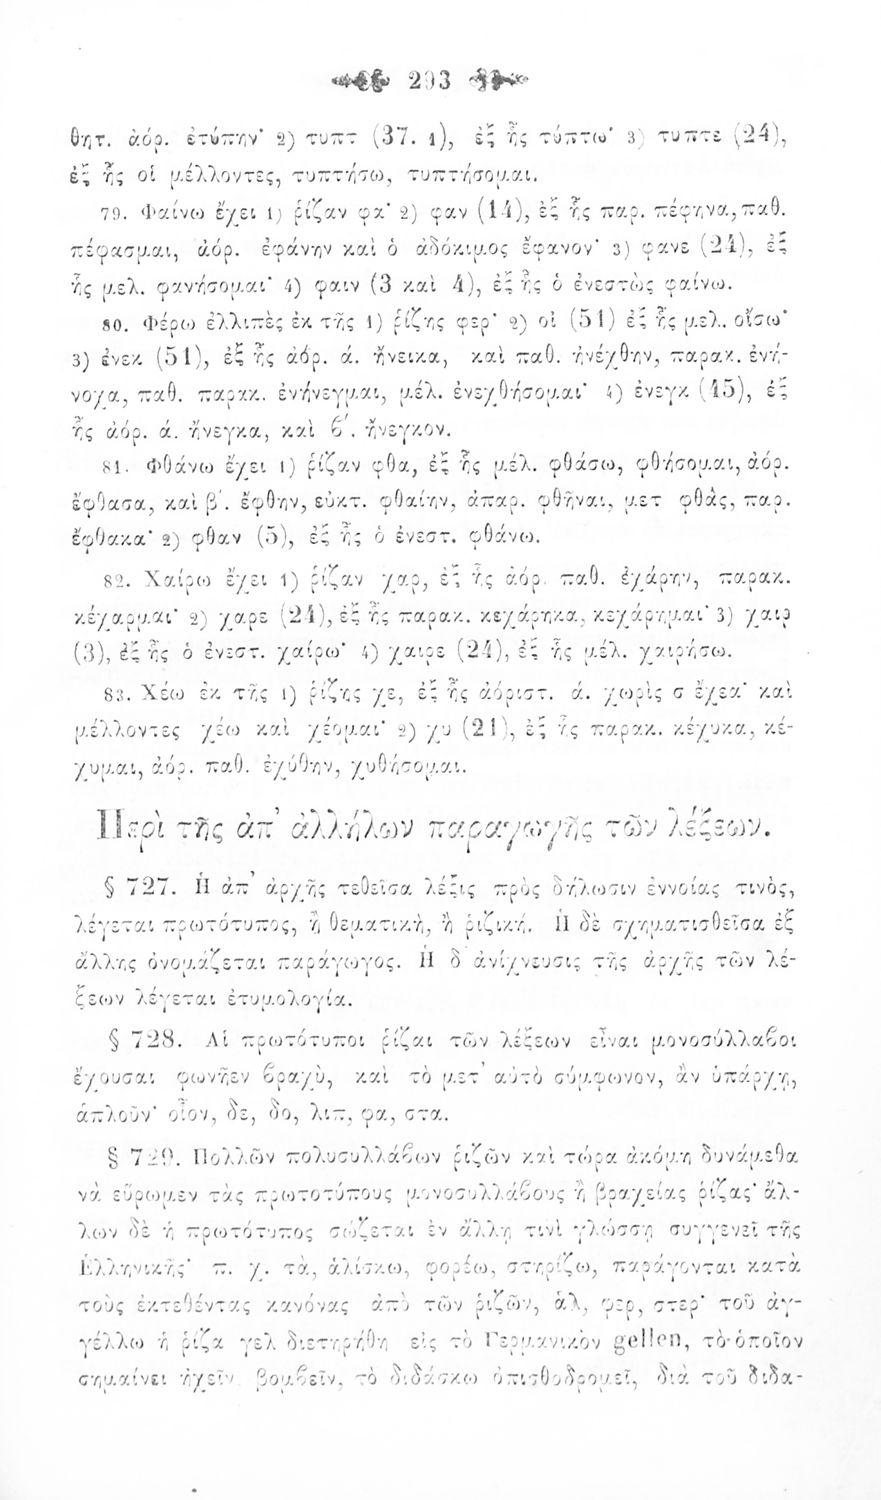 293
θητ. ἀόρ. ἐτύπην˙ 2) τυπτ (37. 1), ἐξ ἧς τύπτω˙ 3) τυπτε (24),
ἐξ ἧς οἱ μέλλοντες, τυπτήσω, τυπτήσομαι.
79. Φαίνω ἔχει 1) ῥίζαν φα˙ 2) φαν (14), ἐξ ἧς παρ. πέφηνα, παθ.
πέφασμαι, ἀόρ. ἐφάνην καὶ ὁ ἀδόκιμος ἔφανον˙ 3) φανε (24), ἐξ
ἧς μελ. φανήσομαι˙ 4) φαιν (3 καὶ 4), ἐξ ἧς ὁ ἐνεστὼς φαίνω.
80. Φέρω ἐλλιπὲς ἐκ τῆς 1) ῥίζης φερ˙ 2) οἰ (51) ἐξ ἧς μελ. οἴσω˙
3) ἐνεκ (51), ἐξ ἧς ἀόρ. ά. ἤνεικα, καὶ παθ. ἠνέχθην, παρακ. ἐνή-
νοχα, παθ. παρακ. ἐνήνεγμαι, μέλ. ἐνεχθήσομαι˙ 4) ἐνεγκ (45), ἐξ
ἧς ἀόρ. ά. ἤνεγκα, καὶ ϐ΄. ἤνεγκον.
81. Φθάνω ἔχει 1) ῥίζαν φθα, ἐξ ἧς μέλ. φθάσω, φθήσομαι, ἀόρ.
ἔφθασα, καὶ β΄. ἔφθην, εὐκτ. φθαίην, ἀπαρ. φθῆναι, μετ φθὰς, παρ.
ἔφθακα˙ 2) φθαν (5), ἐξ ἧς ὁ ἐνεστ. φθάνω.
82. Χαίρω ἔχει 1) ῥίζαν χαρ, ἐξ ἧς ἀόρ. παθ. ἐχάρην, παρακ.
κέχαρμαι˙ 2) χαρε (24), ἐξ ἧς παρακ. κεχάρηκα, κεχάρημαι˙ 3) χαιρ
(3), ἐξ ἧς ὁ ἐνεστ. χαίρω˙ 4) χαιρε (24), ἐξ ἧς μέλ. χαιρήσω.
83. Χέω ἐκ τῆς 1) ῥίζης χε, ἐξ ἧς ἀόριστ. ά. χωρὶς σ ἔχεα˙ καὶ
μέλλοντες χέω καὶ χέομαι˙ 2) χυ (21), ἐξ ἧς παρακ. κέχυκα, κέ-
χυμαι, ἀόρ. παθ. ἐχύθην, χυθήσομαι.
Περὶ τῆς ἀπ' ἀλλήλων παραγωγῆς τῶν λέξεων.
§ 727. Ἡ ἀπ' ἀρχῆς τεθεῖσα λέξις πρὸς δήλωσιν ἐννοίας τινὸς,
λέγεται πρωτότυπος, ἢ θεματικὴ, ἢ ῥιζική. Ἡ δὲ σχηματισθεῖσα ἐξ
ἄλλης ὀνομάζεται παράγωγος. Ἡ δ' ἀνίχνευσις τῆς ἀρχῆς τῶν λέ-
ξεων λέγεται ἐτυμολογία.
§ 728. Αἱ πρωτότυποι ῥίζαι τῶν λέξεων εἶναι μονοσύλλαϐοι
ἔχουσαι φωνῆεν ϐραχὺ, καὶ τὸ μετ' αὐτὸ σύμφωνον, ἂν ὑπάρχῃ,
ἁπλοῦν˙ οἷον, δε, δο, λιπ, φα, στα.
§ 729. Πολλῶν πολυσυλλάϐων ῥιζῶν καὶ τώρα ἀκόμη δυνάμεθα
νὰ εὕρωμεν τὰς πρωτοτύπους μονοσυλλάϐους ἢ βραχείας ῥίζας˙ ἄλ-
λων δὲ ἡ πρωτότυπος σώζεται ἐν ἄλλῃ τινὶ γλώσσῃ συγγενεῖ τῆς
Ἑλληνικῆς˙ π. χ. τὰ, ἁλίσκω, φορέω, στηρίζω, παράγονται κατὰ
τοὺς ἐκτεθέντας κανόνας ἀπὸ τῶν ῥιζῶν, ἁλ, φερ, στερ˙ τοῦ ἀγ-
γέλλω ἡ ῥίζα γελ διετηρήθη εἰς τὸ Γερμανικὸν gellen, τὸ ὁποῖον
σημαίνει ἠχεῖν βομϐεῖν, τὸ διδάσκω ὀπισθοδρομεῖ, διὰ τοῦ διδα-